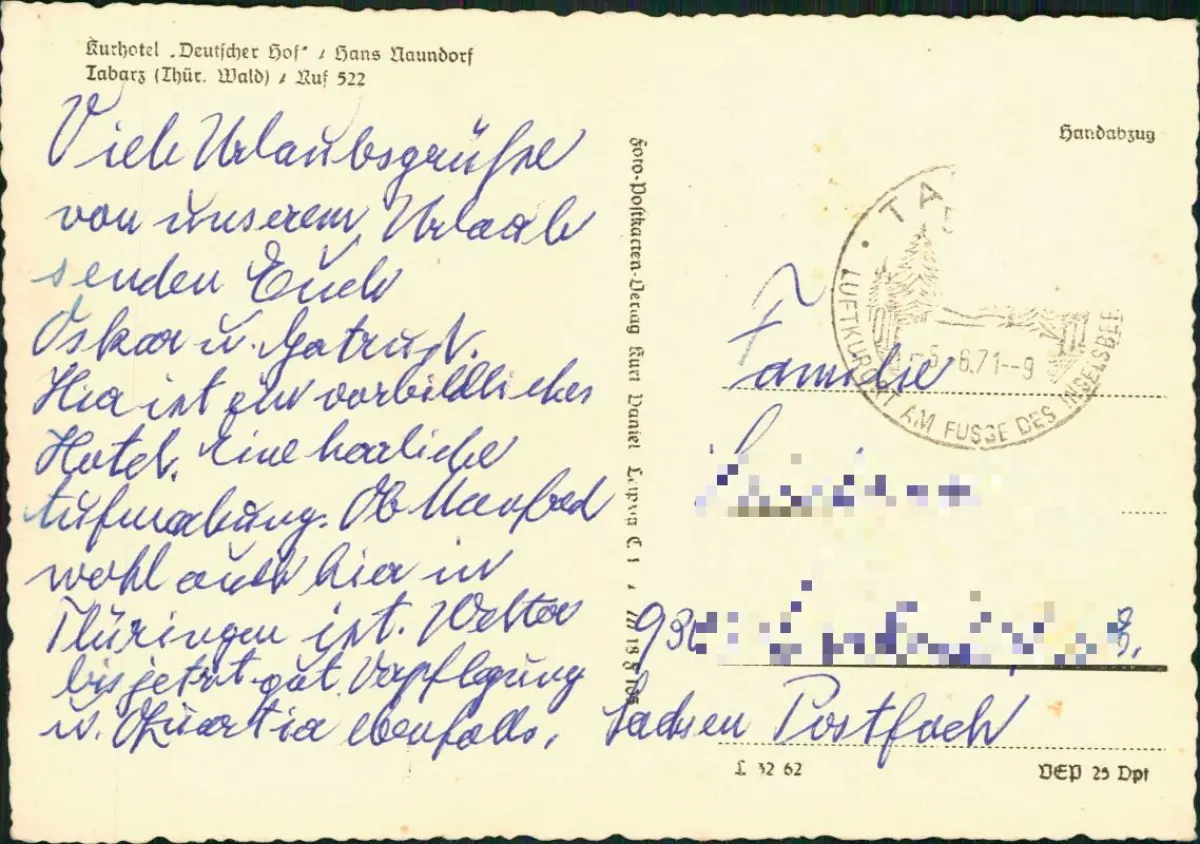 Kurhotel „Deutscher Hof" / Hans Naundorf
Tabarz (Thür. Wald) / Ruf 522
Viele Urlaubsgrüße
von unserem Urlaub
senden Euch
Oskar u.
Hier ist ein vorbildliches
Hotel. Eine herrliche
Aufmachung. Ob Manfred
wohl auch hier in
Thüringen ist. Wetter
bis jetzt gut. Verpflegung
u. Quartier ebenfalls.
Foto-Postkarten-Verlag Kurt Daniel Leipzig C 1
Handabzug
TA
LUFTKURORT AM FUSSE DES INSELSBE
-5.6.71--9
Familie
Sachsen Postfach
L 32 62
VEP 25 Dpf